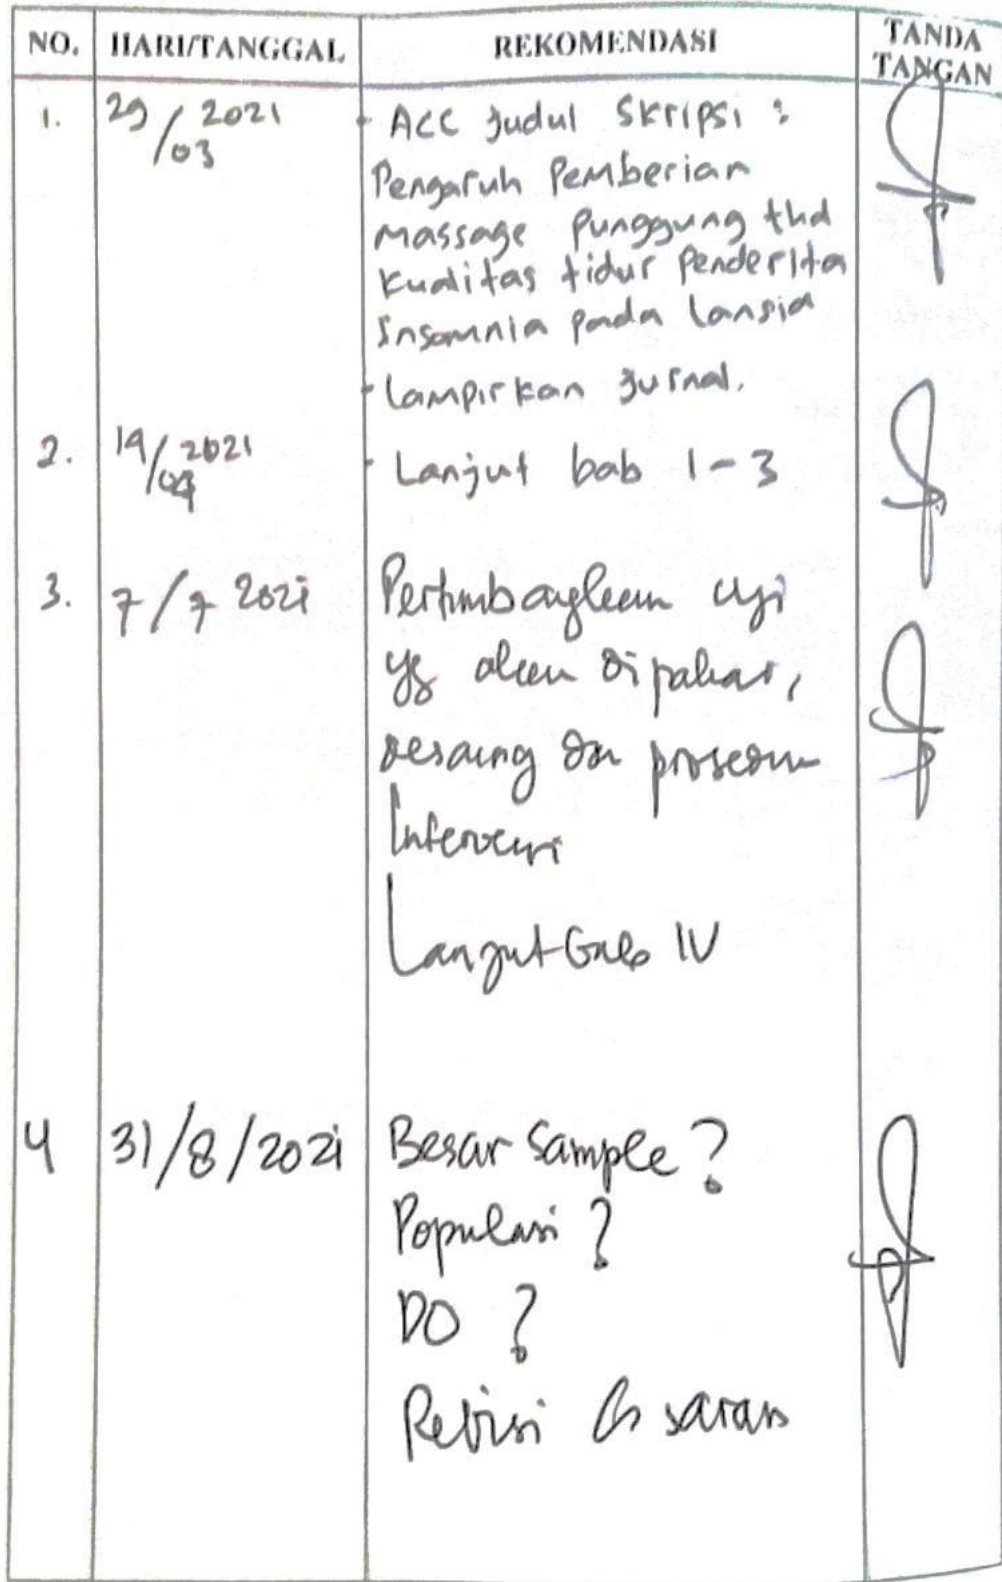 NO. HARI/TANGGAL REKOMENDASI TANDA TANGAN
1. 29/03 2021 - Acc Judul Skripsi :
Pengaruh Pemberian
massage punggung thd
kualitas tidur penderita
Insomnia pada lansia
- Lampirkan Jurnal.
2. 19/04 2021 - Lanjut bab 1-3
3. 7/7 2021 Pertimbangkan uji
yg akan dipakai,
desaing dan prosedur
Intervensi
Lanjut Bab IV
4 31/8/2021 Besar Sample ?
Populasi ?
DO ?
Revisi saran